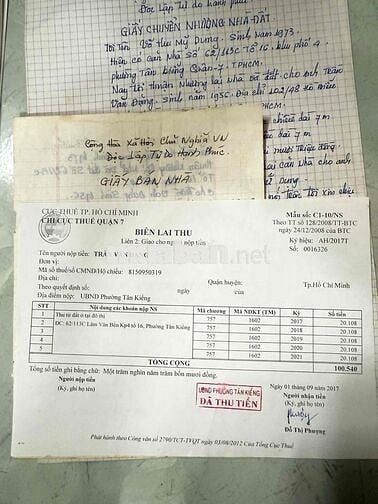 Độc Lập Tự do hạnh phúc
GIẤY CHUYỂN NHƯỢNG NHÀ ĐẤT
Tôi Tên Võ Thu Mỹ Dung. Sinh Năm 1973
Hiện có căn Nhà Số 62/113C Tổ 16, khu phố 4
phường Tân kiểng Quận-7. TPHCM
Nay tôi thuận Nhường lại nhà và đất cho anh Trần
Văn Đặng. Sinh năm 1956. Địa chỉ 102/48
chiều dài 7m
dài 7m
căn Nhà cho anh
Dung
Cộng Hòa Xã Hội Chủ Nghĩa VN
Độc Lập Tự Do Hạnh Phúc
GIẤY BÁN NHÀ
CỤC THUẾ TP. HỒ CHÍ MINH
CHI CỤC THUẾ QUẬN 7
Mẫu số: C1-10/NS
Theo TT số 128/2008/TT-BTC
ngày 24/12/2008 của BTC
BIÊN LAI THU
Liên 2: Giao cho người nộp tiền
Ký hiệu: AH/2017T
Số: 0016326
Tên người nộp tiền: TRẦ
Đơn vị:
Mã số thuế/số CMND/Hộ chiếu: 8150950319
Địa chỉ: Quận huyện: Tp.Hồ Chí Minh
Theo quyết định số: ngày của
Địa điểm nộp: UBND Phường Tân Kiểng
STT Nội dung các khoản nộp NS Mã chương Mã NDKT (TM) Kỳ Số tiền
1 Thu từ đất ở tại đô thị 757 1602 2017 20.108
2 ĐC: 62/113C Lâm Văn Bền Kp4 tổ 16, Phường Tân Kiểng 757 1602 2018 20.108
3 757 1602 2019 20.108
4 757 1602 2020 20.108
5 757 1602 2021 20.108
TỔNG CỘNG 100.540
Tổng số tiền ghi bằng chữ: Một trăm nghìn năm trăm bốn mươi đồng.
Ngày 01 tháng 09 năm 2017
Người nộp tiền
(Ký, ghi họ tên)
UBND PHƯỜNG TÂN KIỂNG
ĐÃ THU TIỀN
Người nhận tiền
(Ký, ghi họ tên)
Đỗ Thị Phượng
Phát hành theo Công văn số 2790/TCT-TVQT ngày 03/08/2012 của Tổng Cục Thuế